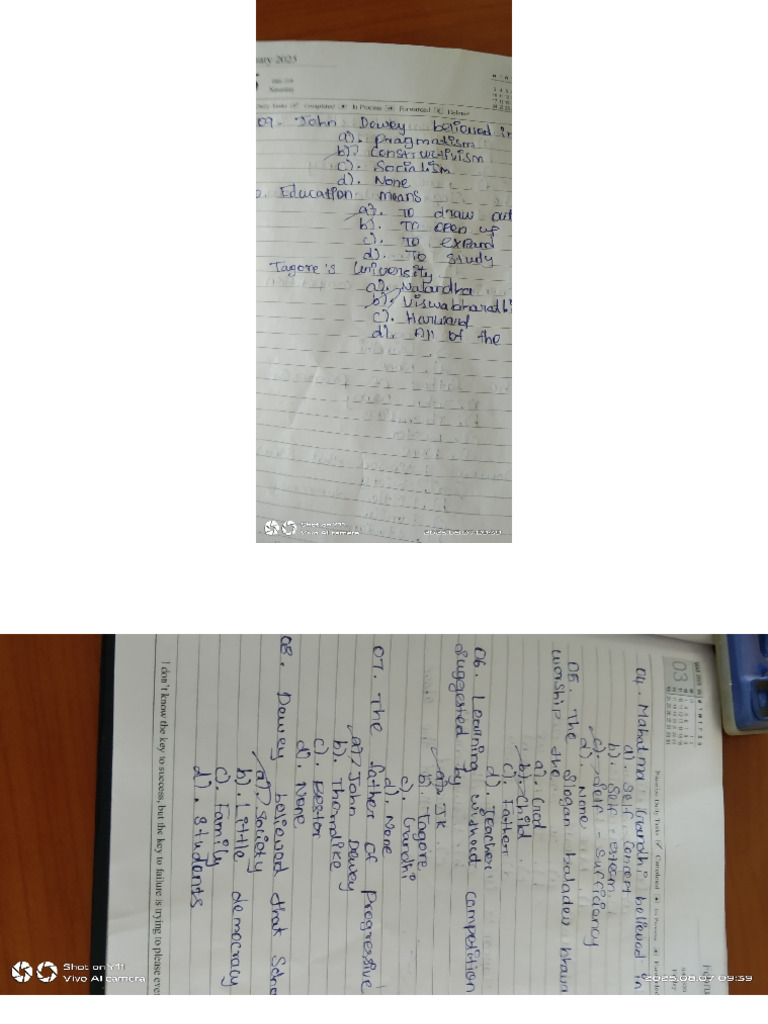 uary 2025
Saturday
Daily Tasks Completed In Process Forwarded Delete
09. John Dewey believed in
a). Pragmatism
b). Constructivism
c). Socialism
d). None
Education means
a). To draw out
b). To open up
c). To expand
d). To study
Tagore's University
a). Nalandha
b). Viswabharathi
c). Harward
d). All of the
Shot on Y11
Vivo AI camera
04. Mahatma Gandhi believed in
a). Self Concept
b). Self-esteem
c). Self-Sufficiency
d). None
05. The slogan baladev bhava
worship the
a). God
b). Child
c). Father
d). Teacher
06. Learning without competition
suggested by
a). JK
b). Tagore
c). Gandhi
d). None
07. The father of Progressive
a). John Dewey
b). Thorndike
c). Bestor
d). None
08. Dewey believed that Scho
a). Society
b). Little democracy
c). Family
d). Students
I don't know the key to success, but the key to failure is trying to please ever
Shot on Y11
Vivo AI camera
2025.08.07 09:39